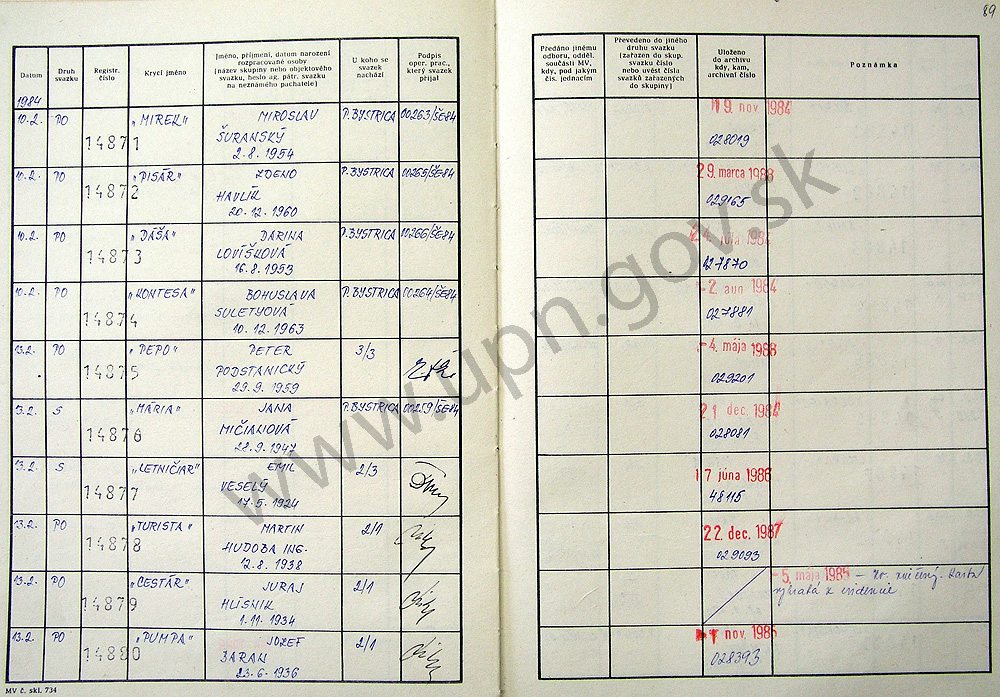 89
Datum
Druh svazku
Registr. číslo
Krycí jméno
Jméno, příjmení, datum narození
rozpracované osoby
(název skupiny nebo objektového
svazku, heslo ag. pátr. svazku
na neznámého pachatele)
U koho se
svazek
nachází
Podpis
oper. prac.,
který svazek
přijal
Předáno jinému
odboru, odděl.
součásti MV,
kdy, pod jakým
čís. jednacím
Převedeno do jiného
druhu svazku
(zařazen do skup.
svazku číslo
nebo uvést čísla
svazků zařazených
do skupiny)
Uloženo
do archivu
kdy, kam,
archivní číslo
Poznámka
1984
10.2. PO 14871 „MIREK" MIROSLAV P.BYSTRICA 00263/ŠE-84 19. nov. 1984
ŠURANSKÝ 028019
2.8.1954
10.2. PO 14872 „PISÁR" ZDENO P.BYSTRICA 00265/ŠE-84 29. marca 1988
HAVLÍK 029165
20.12.1960
10.2. PO 14873 „DÁŠA" DARINA P.BYSTRICA 00266/ŠE-84 24. júla 1984
LOVÍŠKOVÁ 027870
16.8.1953
10.2. PO 14874 „KONTESA" BOHUSLAVA P.BYSTRICA 00264/ŠE-84 -2. aug. 1984
SULETYOVÁ 027881
10.12.1963
13.2. PO 14875 „PEPO" PETER 3/3 -4. mája 1988
PODSTANICKÝ 029201
29.9.1959
13.2. S 14876 „MÁRIA" JANA P.BYSTRICA 00259/ŠE-84 21. dec. 1984
MIČIANOVÁ 028081
28.9.1947
13.2. S 14877 „LETNIČIAR" EMIL 2/3 17. júna 1986
VESELÝ 48115
17.5.1924
13.2. PO 14878 „TURISTA" MARTIN 2/1 22. dec. 1987
HUDOBA ING. 029093
12.8.1938
13.2. PO 14879 „CESTÁR" JURAJ 2/1 -5. mája 1985 –
HLÍSNIK
1.11.1934
13.2. PO 14880 „PUMPA" JOZEF 2/1 nov. 1985
BARAN 028393
23.6.1936
MV č. skl. 734
www.upn.gov.sk